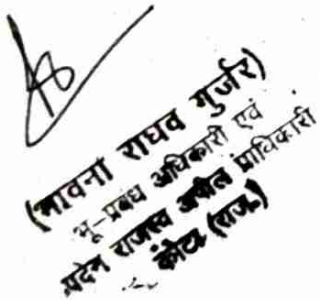 (भावना राघव गुर्जर)
भू-प्रबंध अधिकारी एवं
पदेन राजस्व अपील प्राधिकारी
कोटा (राज.)